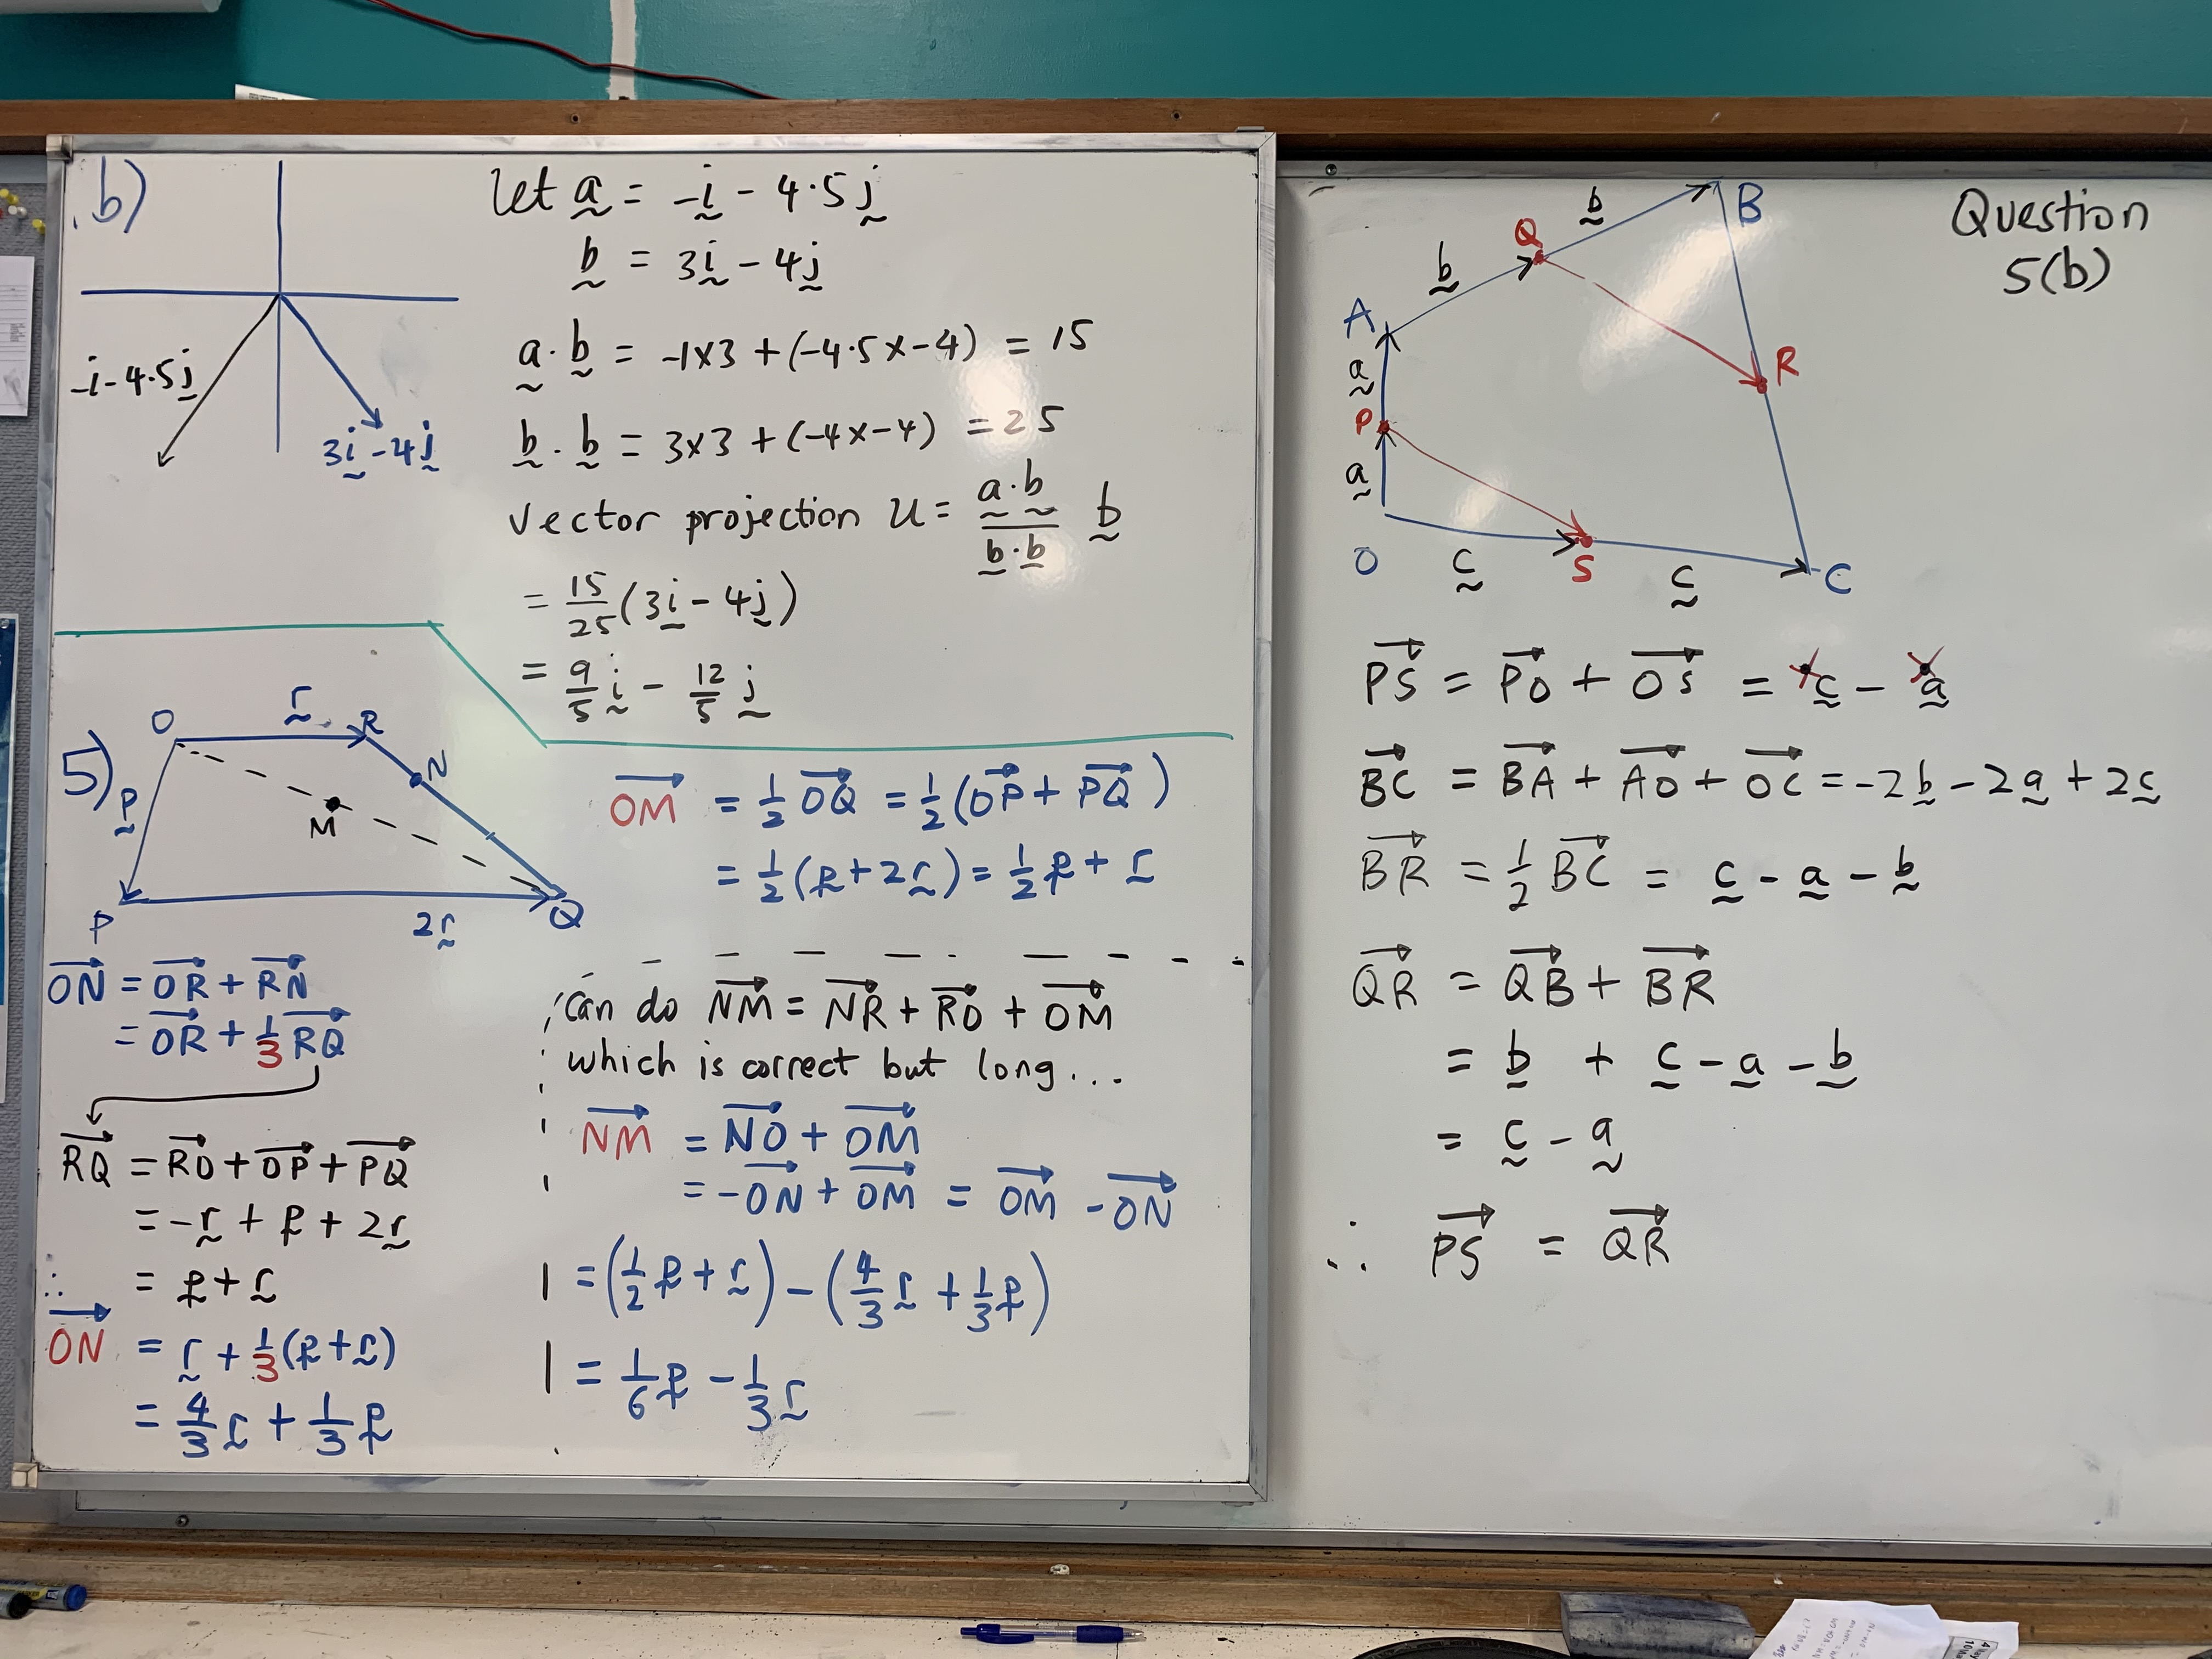 .b)
-i - 4.5j
3i - 4j
let a = -i - 4.5j
b = 3i - 4j
a · b = -1×3 + (-4.5×-4) = 15
b · b = 3×3 + (-4×-4) = 25
vector projection u = (a·b)/(b·b) b
= 15/25 (3i - 4j)
= 9/5 i - 12/5 j
5)
O
r
R
N
p
M
P
2r
Q
→OM = 1/2 →OQ = 1/2 (→OP + →PQ)
= 1/2 (p + 2r) = 1/2 p + r
→ON = →OR + →RN
= →OR + 1/3 →RQ
→RQ = →RO + →OP + →PQ
= -r + p + 2r
= p + r
∴
→ON = r + 1/3 (p + r)
= 4/3 r + 1/3 p
can do →NM = →NR + →RO + →OM
which is correct but long...
→NM = →NO + →OM
= -→ON + →OM = →OM - →ON
= (1/2 p + r) - (4/3 r + 1/3 p)
= 1/6 p - 1/3 r
Question
5(b)
B
b
Q
b
A
a
R
P
a
O
c
S
c
C
→PS = →PO + →OS = c - a
→BC = →BA + →AO + →OC = -2b - 2a + 2c
→BR = 1/2 →BC = c - a - b
→QR = →QB + →BR
= b + c - a - b
= c - a
∴ →PS = →QR